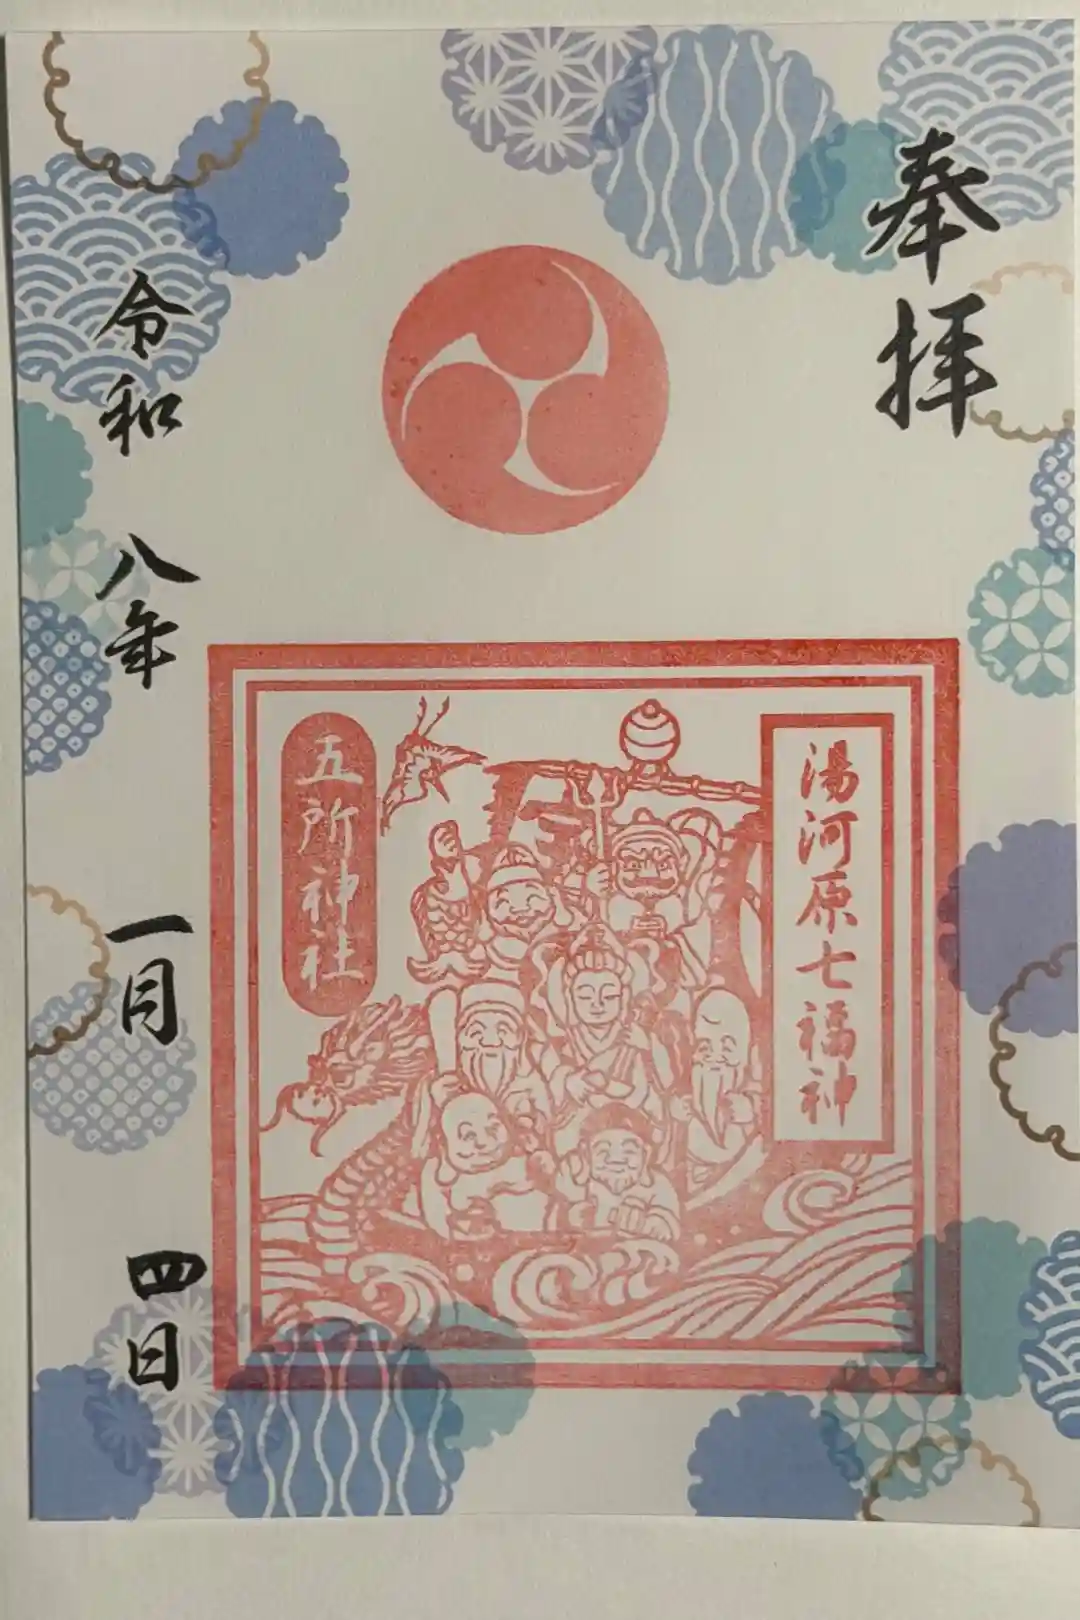 奉拝
湯河原七福神
五所神社
令和八年一月四日